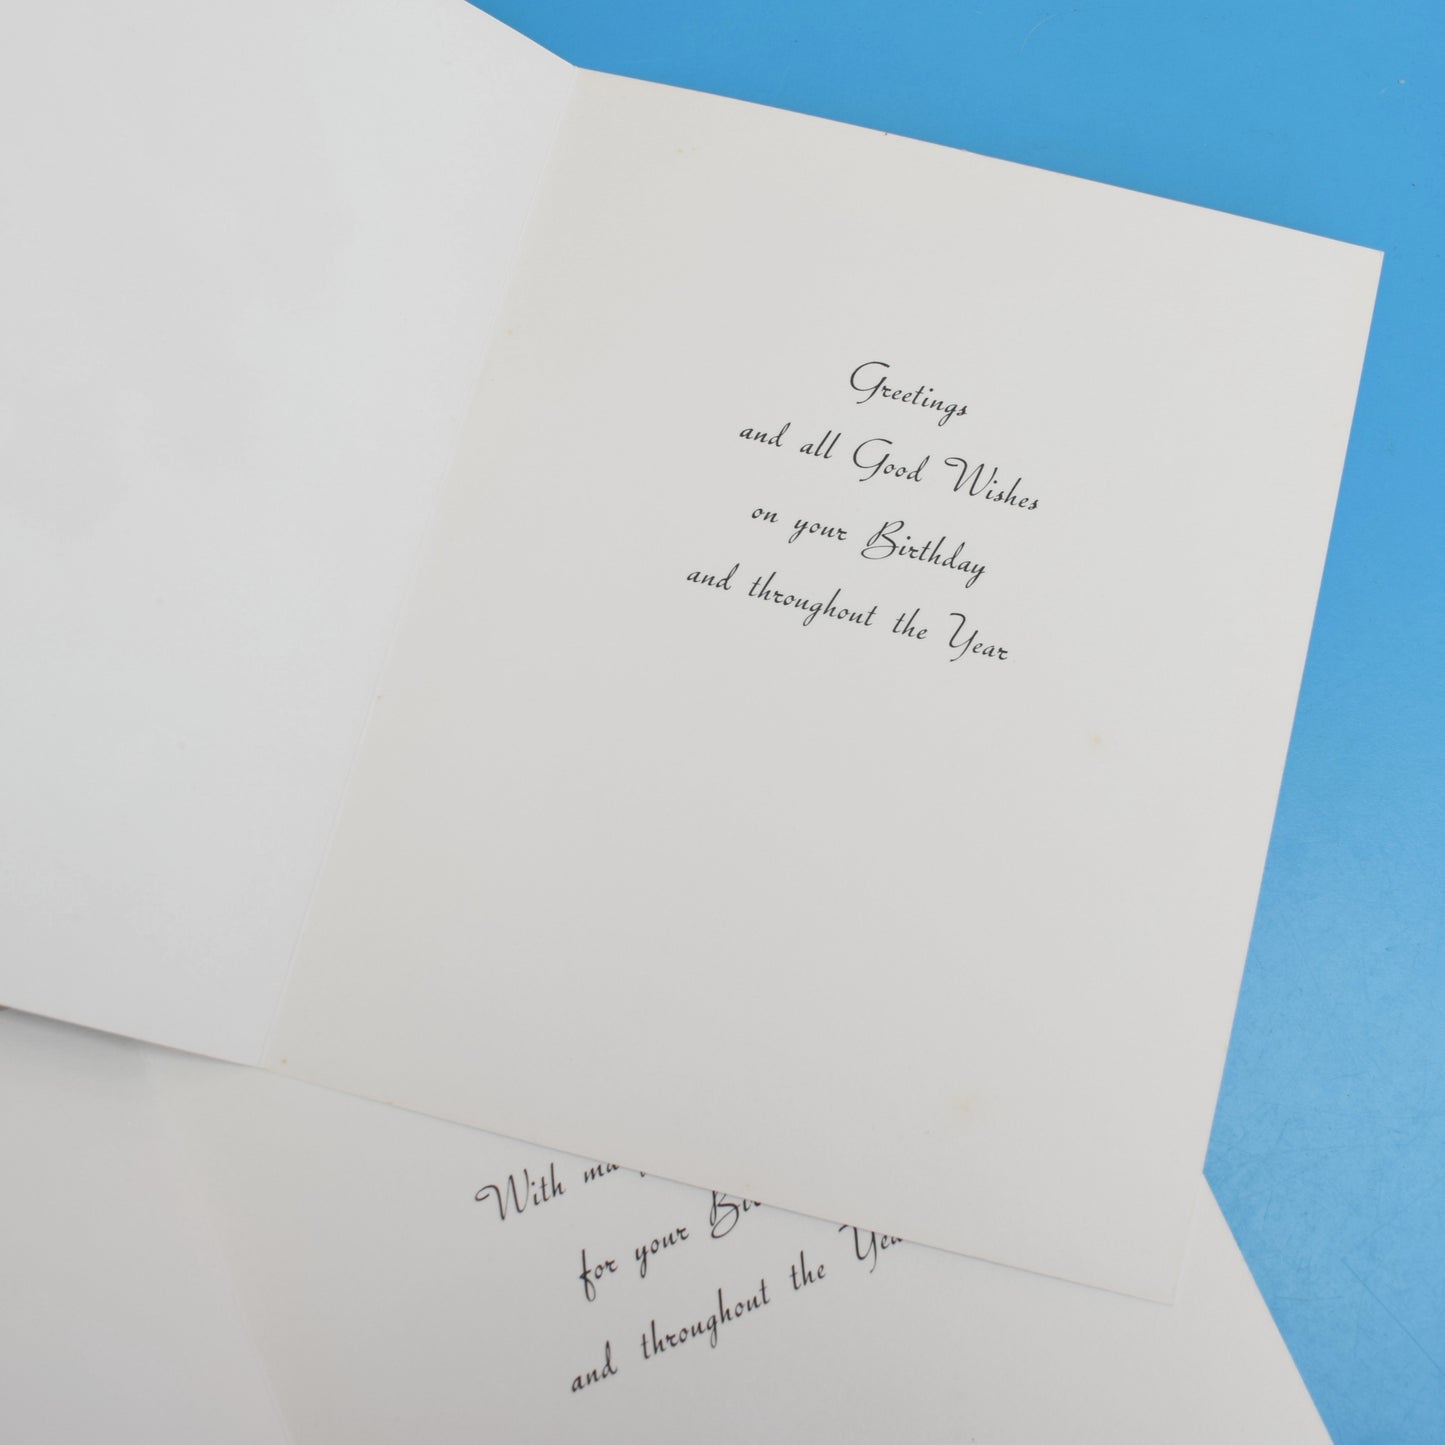 Greetings
and all Good Wishes
on your Birthday
and throughout the Year
With
for your
and throughout the